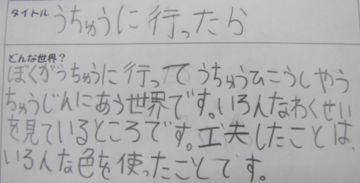 タイトル
うちゅうに行ったら
どんな世界?
ぼくがうちゅうに行ってうちゅうひこうしやう
ちゅうじんにあう世界です。いろんなわくせい
を見ているところです。工夫したことは、
いろんな色を使ったことです。